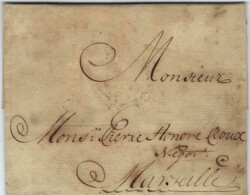 Monsieur
Monsr. Pierre Honoré Roux
Negot.
Marseille